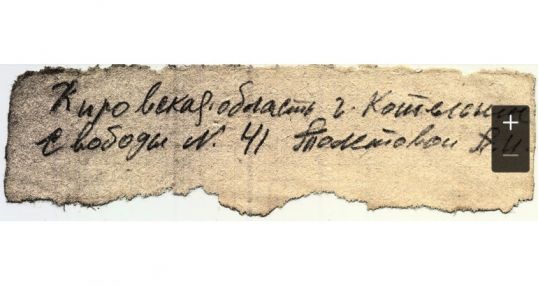 Кировская область г. Котельнич
Свободы N. 41 Толстовой А.И.